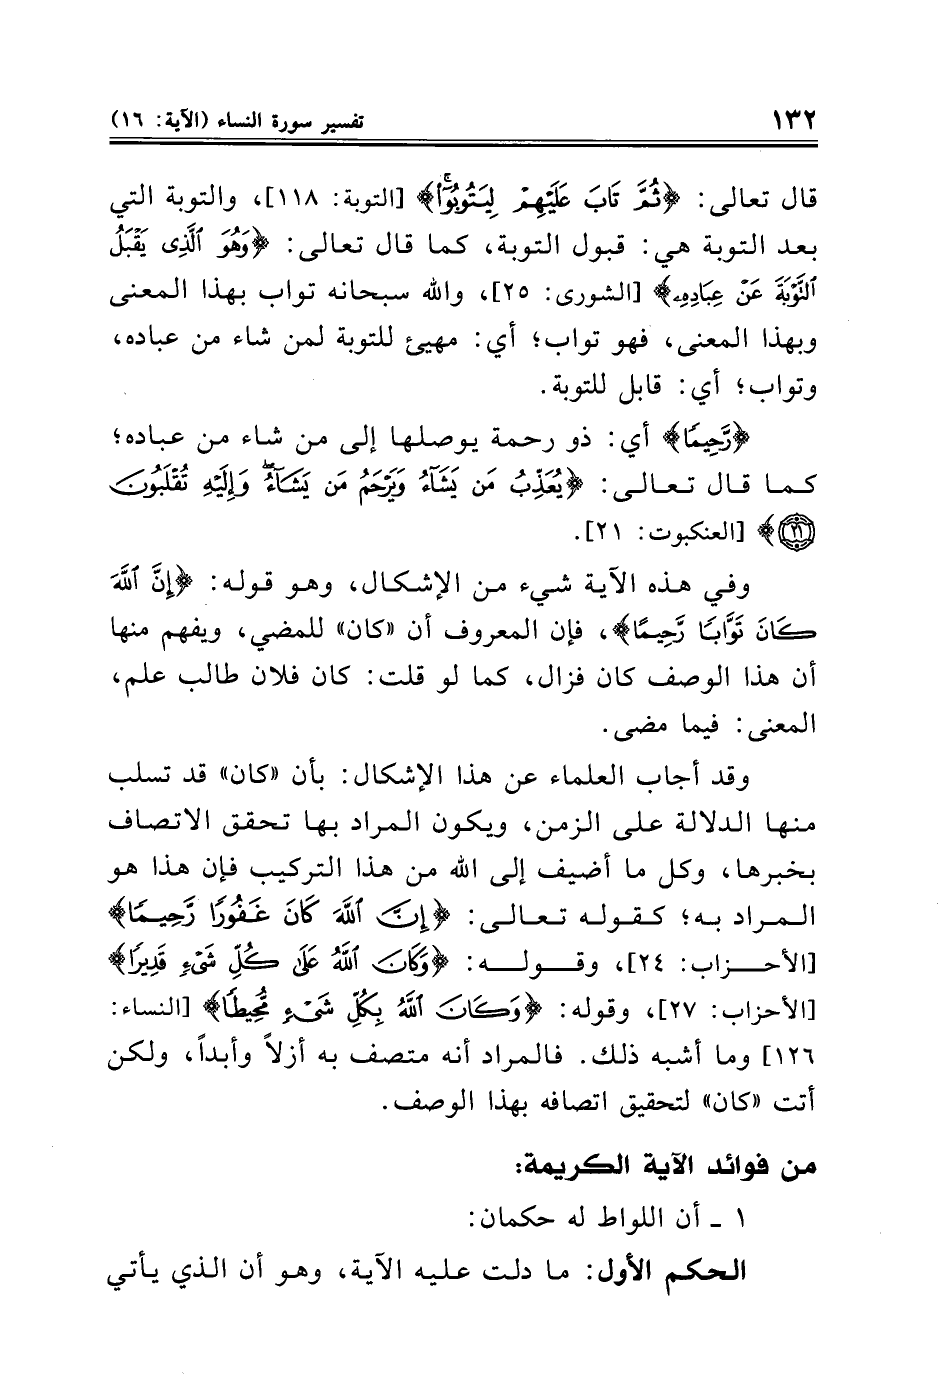 ١٣٢ تفسير سورة النساء (الآية: ١٦)
قال تعالى: ﴿ثُمَّ تَابَ عَلَيْهِمْ لِيَتُوبُوٓا۟ۚ﴾ [التوبة: ١١٨]، والتوبة التي
بعد التوبة هي: قبول التوبة، كما قال تعالى: ﴿وَهُوَ ٱلَّذِى يَقْبَلُ
ٱلتَّوْبَةَ عَنْ عِبَادِهِۦ﴾ [الشورى: ٢٥]، والله سبحانه تواب بهذا المعنى
وبهذا المعنى، فهو تواب؛ أي: مهيئ للتوبة لمن شاء من عباده،
وتواب؛ أي: قابل للتوبة.
﴿رَّحِيمًا﴾ أي: ذو رحمة يوصلها إلى من شاء من عباده؛
كما قال تعالى: ﴿يُعَذِّبُ مَن يَشَآءُ وَيَرْحَمُ مَن يَشَآءُۖ وَإِلَيْهِ تُقْلَبُونَ
٢١﴾ [العنكبوت: ٢١].
وفي هذه الآية شيء من الإشكال، وهو قوله: ﴿إِنَّ ٱللَّهَ
كَانَ تَوَّابًا رَّحِيمًا﴾، فإن المعروف أن «كان» للمضي، ويفهم منها
أن هذا الوصف كان فزال، كما لو قلت: كان فلان طالب علم،
المعنى: فيما مضى.
وقد أجاب العلماء عن هذا الإشكال: بأن «كان» قد تسلب
منها الدلالة على الزمن، ويكون المراد بها تحقق الاتصاف
بخبرها، وكل ما أضيف إلى الله من هذا التركيب فإن هذا هو
المراد به؛ كقوله تعالى: ﴿إِنَّ ٱللَّهَ كَانَ غَفُورًا رَّحِيمًا﴾
[الأحزاب: ٢٤]، وقوله: ﴿وَكَانَ ٱللَّهُ عَلَىٰ كُلِّ شَىْءٍ قَدِيرًا﴾
[الأحزاب: ٢٧]، وقوله: ﴿وَكَانَ ٱللَّهُ بِكُلِّ شَىْءٍ مُّحِيطًا﴾ [النساء:
١٢٦] وما أشبه ذلك. فالمراد أنه متصف به أزلاً وأبداً، ولكن
أتت «كان» لتحقيق اتصافه بهذا الوصف.
من فوائد الآية الكريمة:
١ ـ أن اللواط له حكمان:
الحكم الأول: ما دلت عليه الآية، وهو أن الذي يأتي